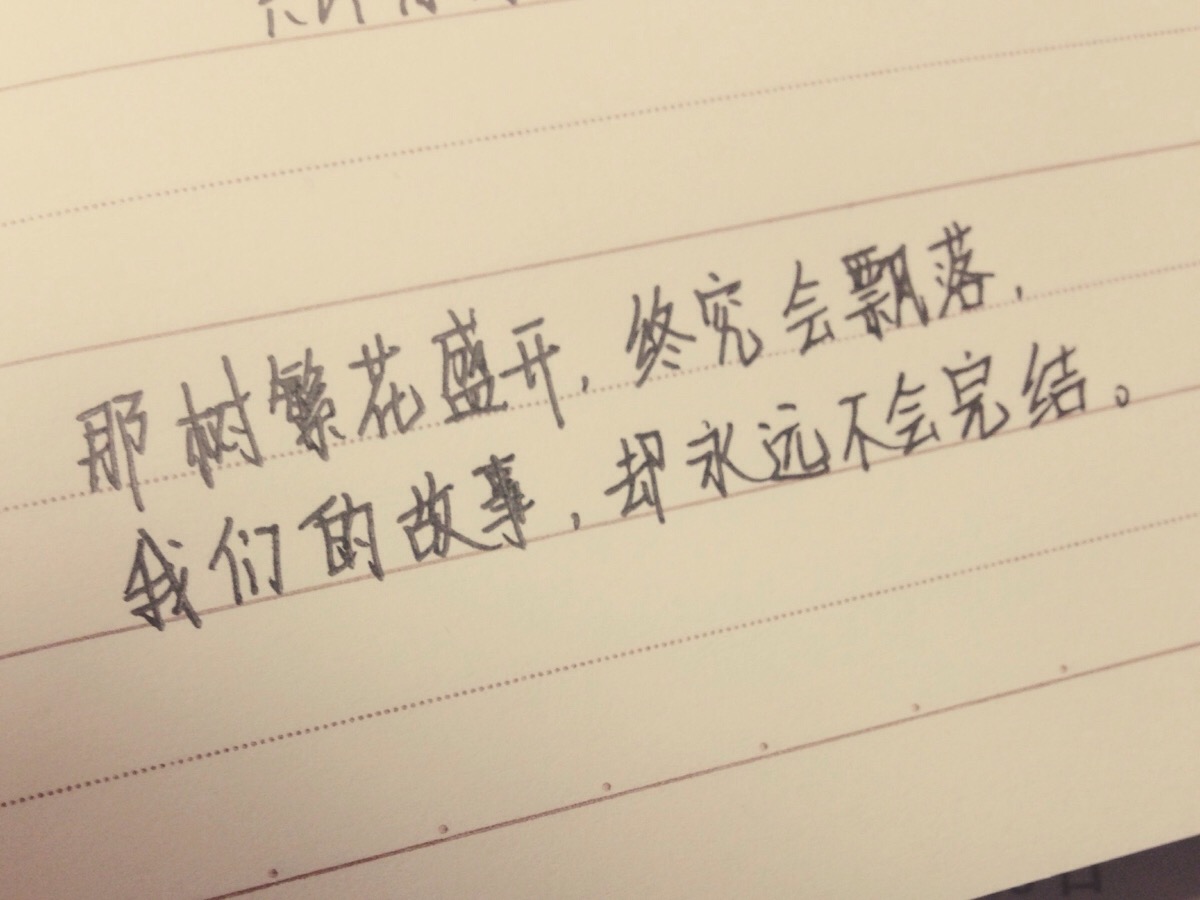 那树繁花盛开,终究会飘落,
我们的故事,却永远不会完结。